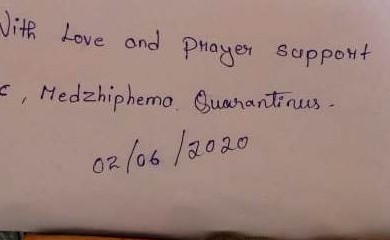 With Love and Prayer support
c, Medzhiphema Quarantinus.
02/06/2020